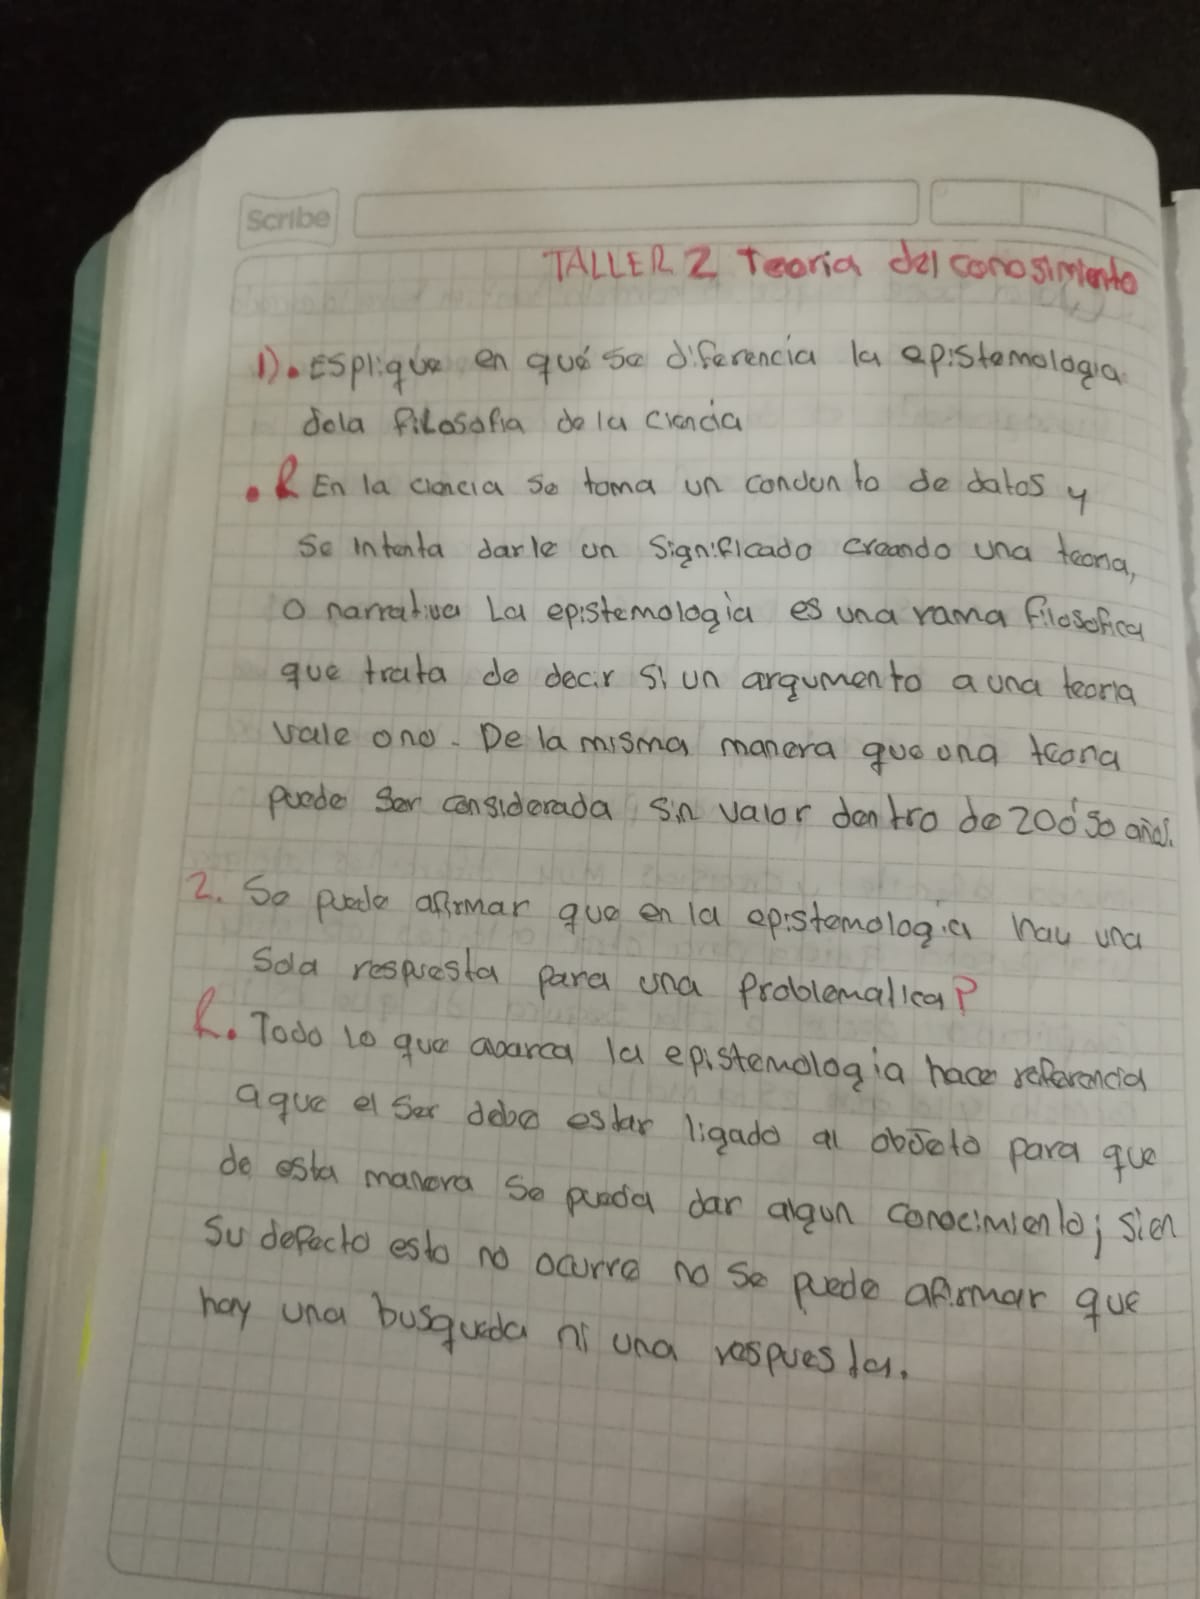 Scribe
TALLER 2 Teoria del conosimiento
1). Esplique en qué se diferencia la epistemologia
dela filosofia de la ciencia
. R En la ciencia se toma un condunto de datos y
se intenta darle un significado creando una teoria,
o narrativa La epistemologia es una rama filosofica
que trata de decir si un argumento a una teoria
vale ono. De la misma manera que una teoria
puede ser considerada sin valor dentro de 20 ó 50 años.
2. Se puede afirmar que en la epistemologia hay una
sola respuesta para una problematica?
R. Todo lo que abarca la epistemologia hace referencia
aque el ser debe estar ligado al objeto para que
de esta manera se pueda dar algun conocimiento; sien
su defecto esto no ocurre no se puede afirmar que
hay una busqueda ni una respuesta.